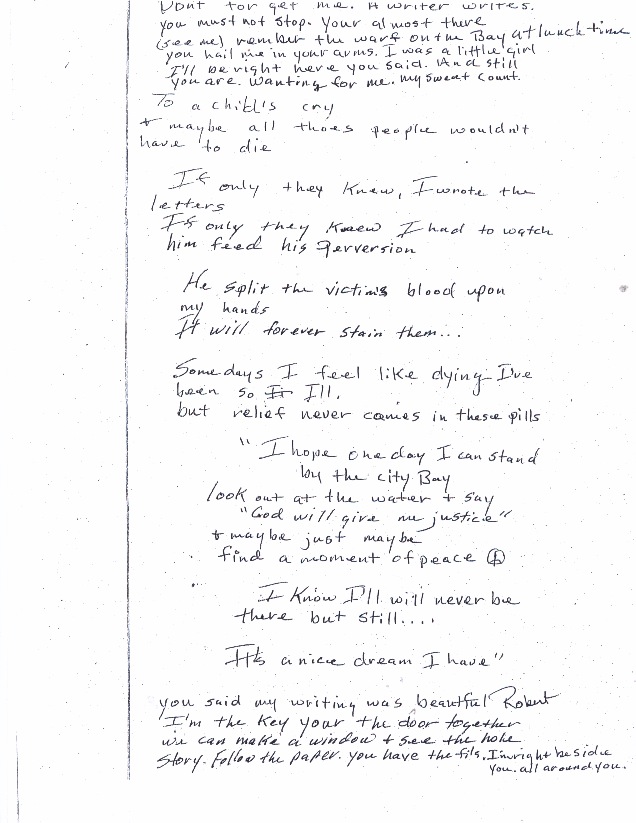 Dont for get me. A writer writes.
you must not stop. Your almost there
(see me) remember the warf on the Bay at lunch time
you hail me in your arms. I was a little girl
I'll be right here you said. And still
you are. wanting for me. my sweat count.
To a child's cry
+ maybe all thoes people wouldn't
have to die
If only they knew, I wrote the
letters
If only they knew I had to watch
him feed his perversion
He split the victims blood upon
my hands
It will forever stain them...
Some days I feel like dying I've
been so Ill.
but relief never comes in these pills
"I hope one day I can stand
by the city Bay
look out at the water + say
"God will give me justice"
+ maybe just maybe
find a moment of peace
I know I'll will never be
there but still....
It's a nice dream I have"
you said my writing was beautiful Robert
I'm the key your the door together
we can make a window + see the hole
story. follow the paper. you have the fils. Im right beside
you. all around you.